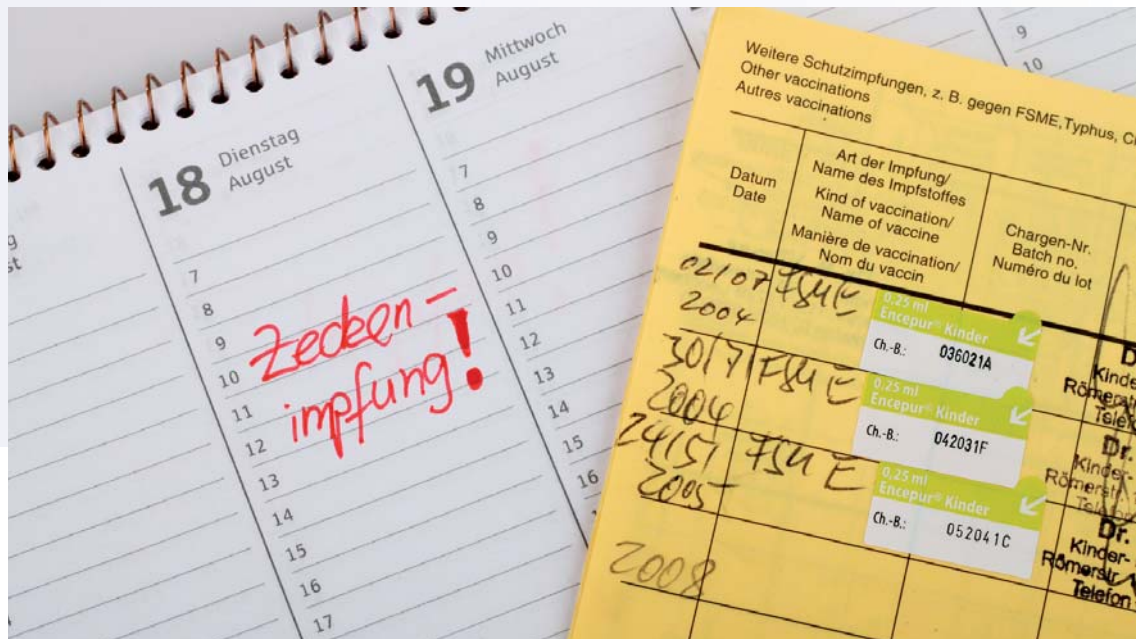 g
st
18 Dienstag
August
7
8
9
10
11
12
13
14
15
16
17
Zecken-
impfung!
19 Mittwoch
August
7
8
9
10
11
12
13
14
15
16
9
10
Weitere Schutzimpfungen, z. B. gegen FSME, Typhus,
Other vaccinations
Autres vaccinations
Datum
Date
Art der Impfung/
Name des Impfstoffes
Kind of vaccination/
Name of vaccine
Manière de vaccination/
Nom du vaccin
Chargen-Nr.
Batch no.
Numéro du lot
02/07 FSME
2004
0,25 ml
Encepur® Kinder
Ch.-B.: 036021A
Kinde
Römerst
Telef
30/7/ FSME
2004
0,25 ml
Encepur® Kinder
Ch.-B.: 042031F
Dr.
Kinder-
Römerstr.
Telefon
24/5/ FSME
2005
0,25 ml
Encepur® Kinder
Ch.-B.: 052041C
Dr.
Kinder-
Römerstr.
Telefon
2008